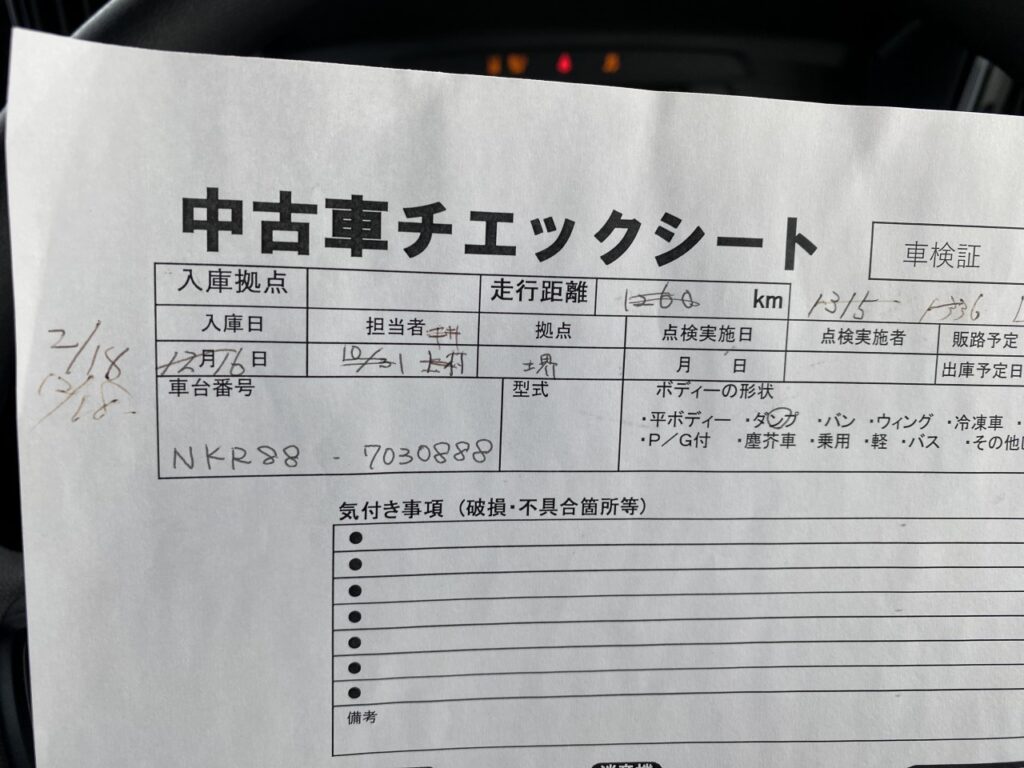 中古車チエックシート
車検証
入庫拠点 走行距離 1260 km 1315 1336
入庫日 担当者 拠点 点検実施日 点検実施者 販路予定
2/18 12月16日 10/31 上村 堺 月 日 出庫予定日
12/18
車台番号 型式 ボディーの形状
・平ボディー ・ダンプ ・バン ・ウィング ・冷凍車 ・
NKR88 - 7030888 ・P/G付 ・塵芥車 ・乗用 ・軽 ・バス ・その他
気付き事項（破損・不具合箇所等）
備考